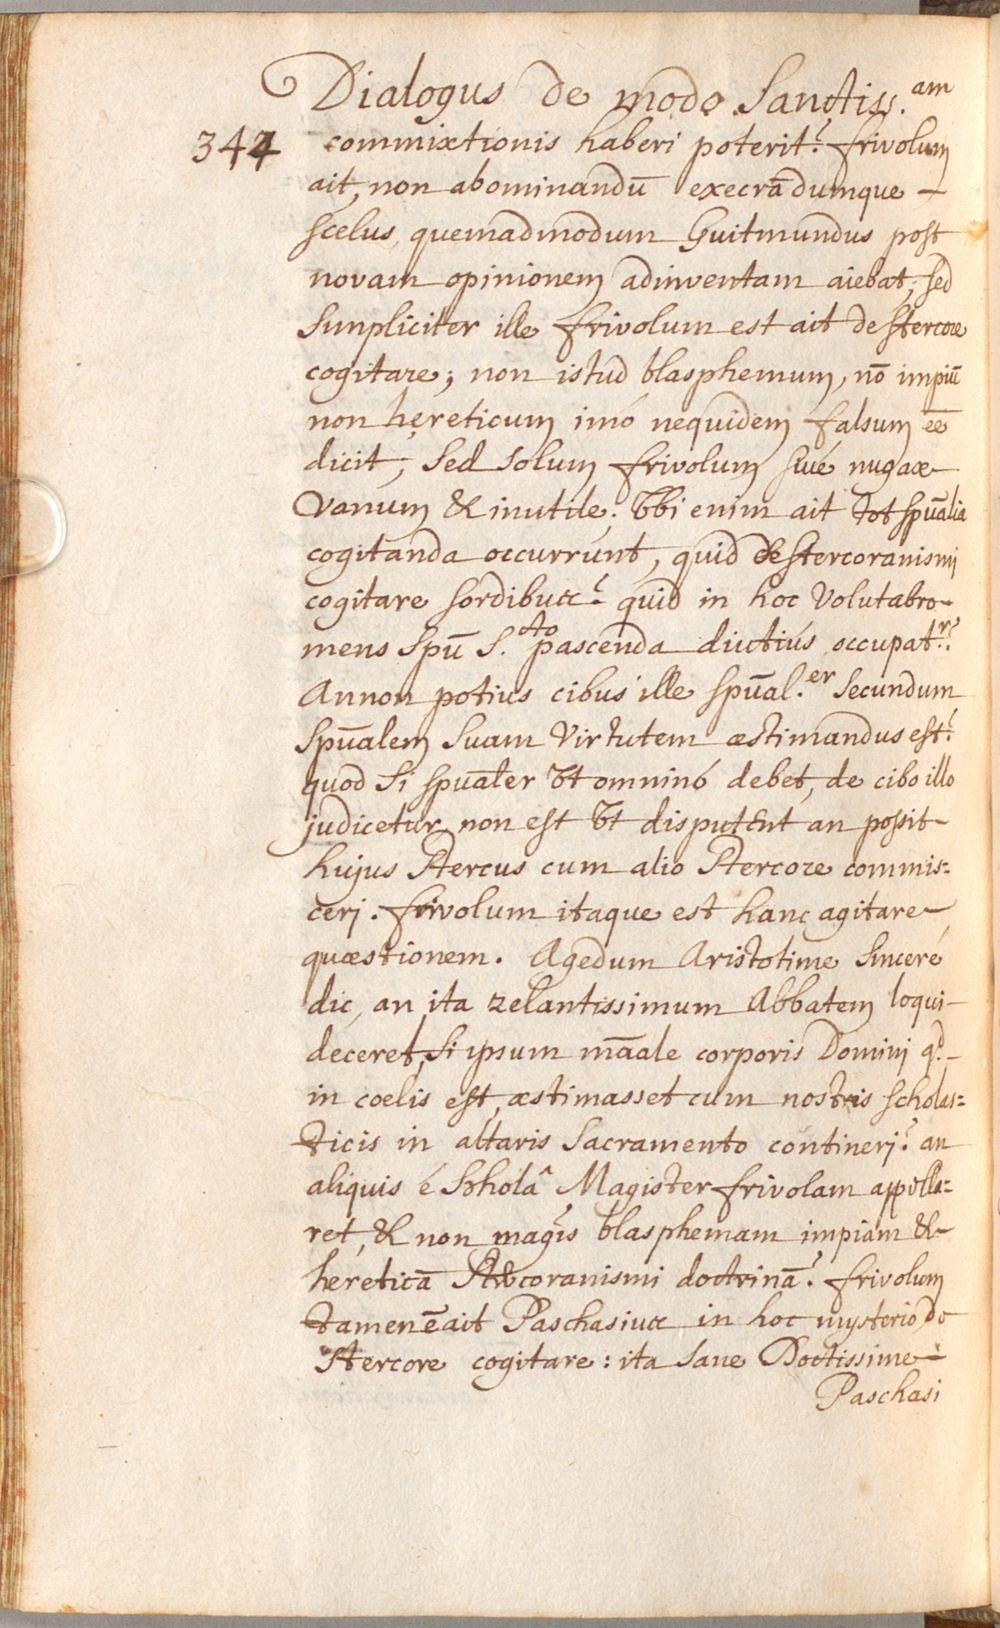 Dialogus de modo Sanctiss.am
344 commixtionis haberi poterit? frivolum
ait, non abominandū execrādumque
scelus, quemadmodum Guitmundus post
novam opinionem adinventam aiebat, sed
Simpliciter ille frivolum est ait de stercore
cogitare; non istud blasphemum, nō impiū
non hęreticum imó nequidem falsum ēē
dicit; sed solum frivolum sivé nugax
Vanum & inutile. Vbi enim ait tot spūalia
cogitanda occurrunt, quid de stercoranismi
cogitare sordibus? quid in hoc Volutabro
mens Spū S.cto pascenda diutiús occupat.r?
Annon potius cibus ille spūal.er secundum
spūalem suam Virtutem æstimandus est?
quod si spūaler Vt omninó debet, de cibo illo
judicetur, non est Vt disputent an possit
hujus stercus cum alio stercore commis=
ceri. frivolum itaque est hanc agitare
quæstionem. Agedum Aristotime sinceré
dic, an ita zelantissimum Abbatem loqui
deceret, si ipsum māale corporis Domini q.d
in coelis est, æstimasset cum nostris scholas=
ticis in altaris Sacramento contineri? an
aliquis é Scholâ Magister frivolam appella=
ret, & non magis blasphemam impiam &
hereticā Stercoranismi doctrinā? frivolum
tamen ē ait Paschasius in hoc mysterio de
stercore cogitare: ita sane Doctissime
Paschasi